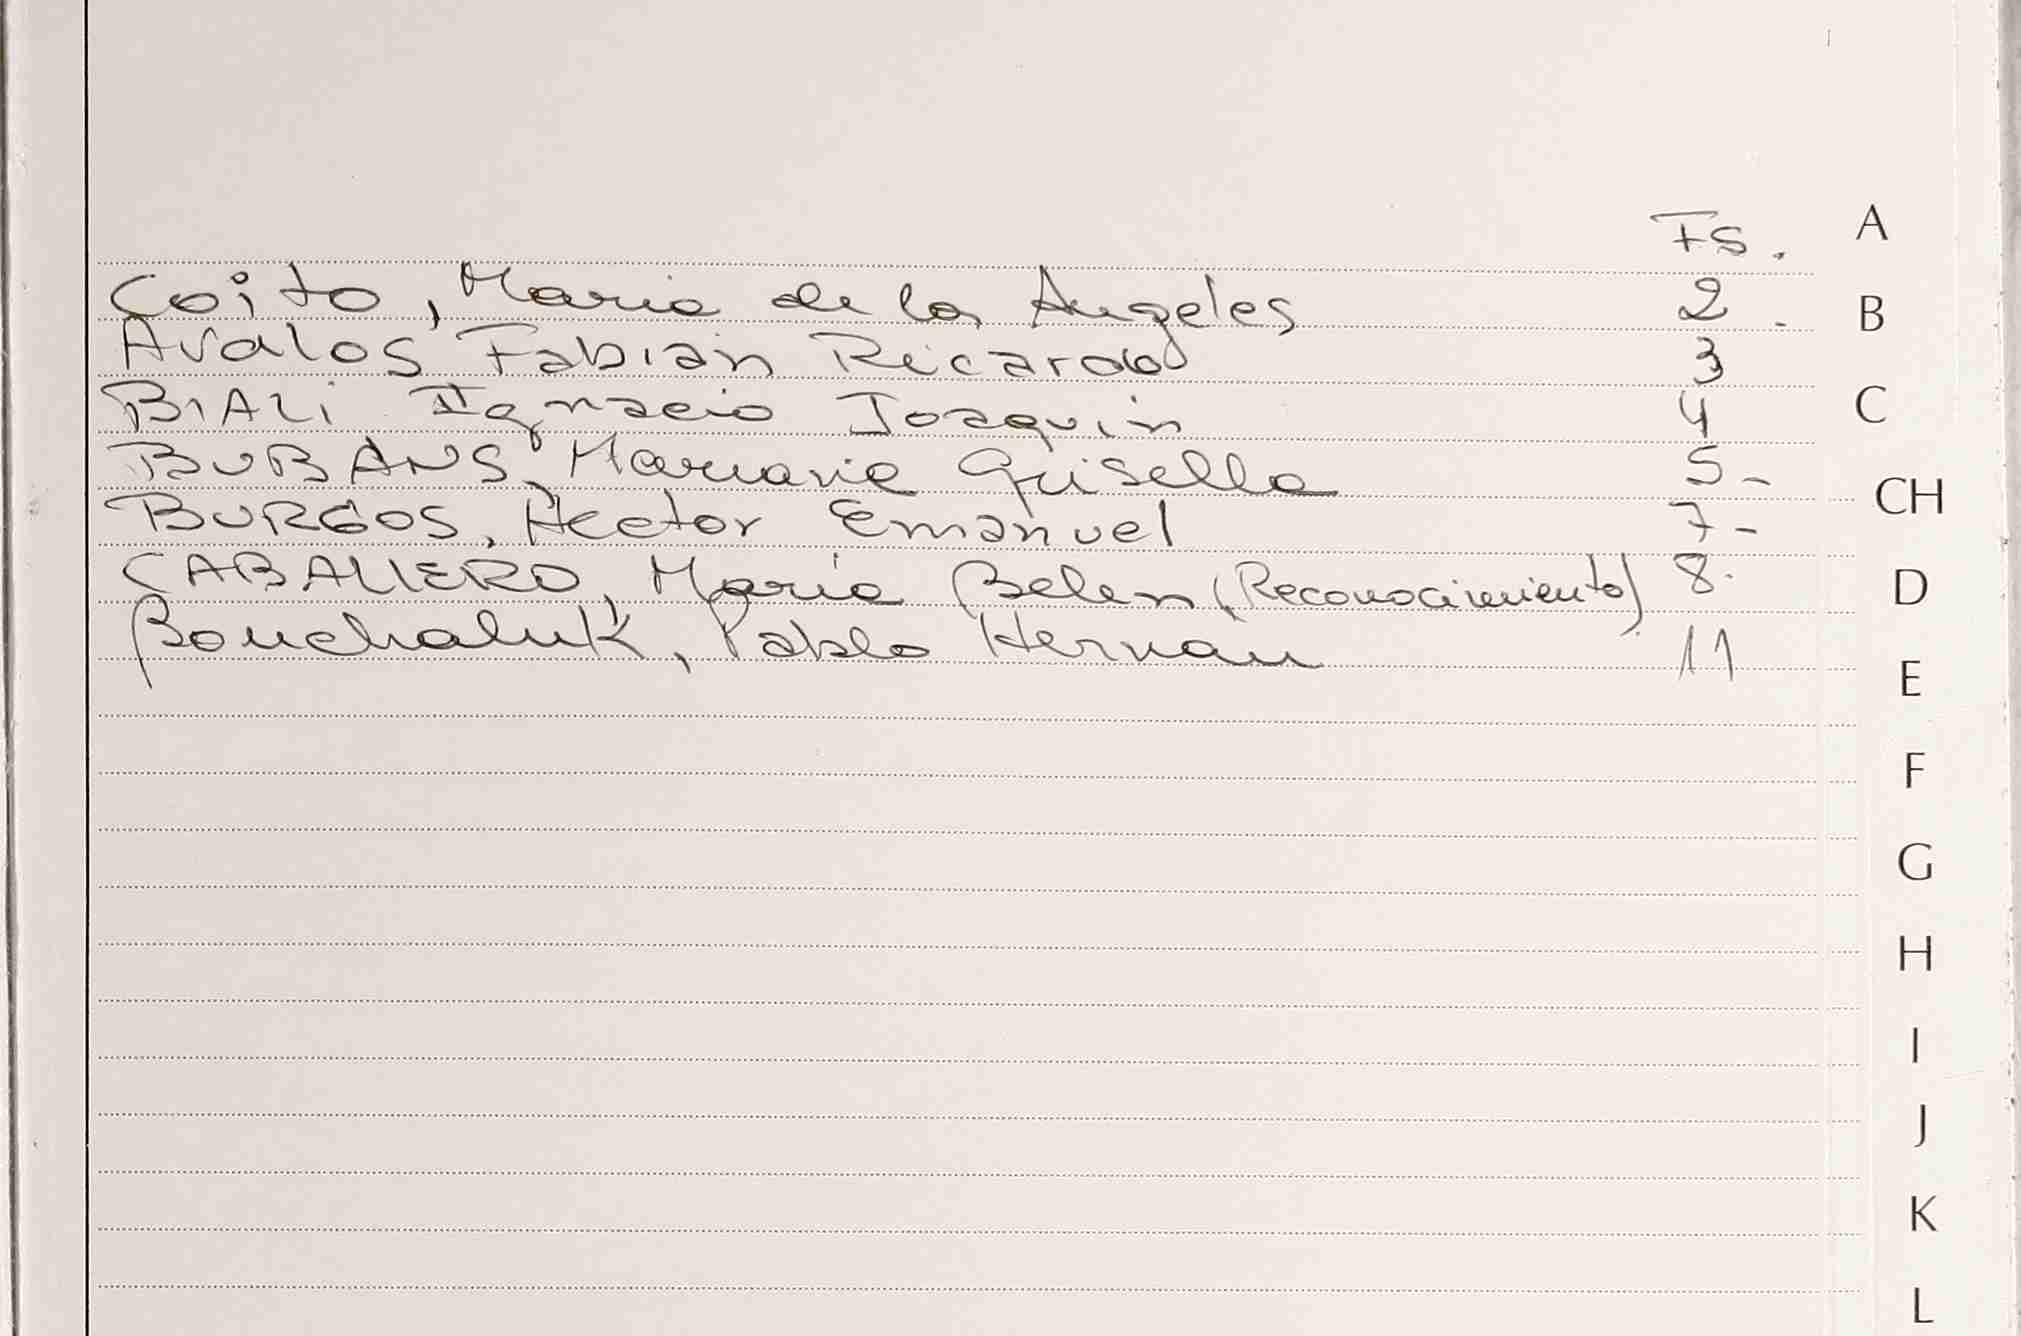 Fs.
Coito, Maria de los Angeles 2.
Avalos Fabian Ricardo 3
BIALi Ignacio Joaquin 4
BUBANS, Mariana Grisella 5-
BURGOS, Hector Emanuel 7-
CABALLERO, María Belen (Reconocimiento) 8.
Bonchaluk, Pablo Hernan 11
A
B
C
CH
D
E
F
G
H
I
J
K
L